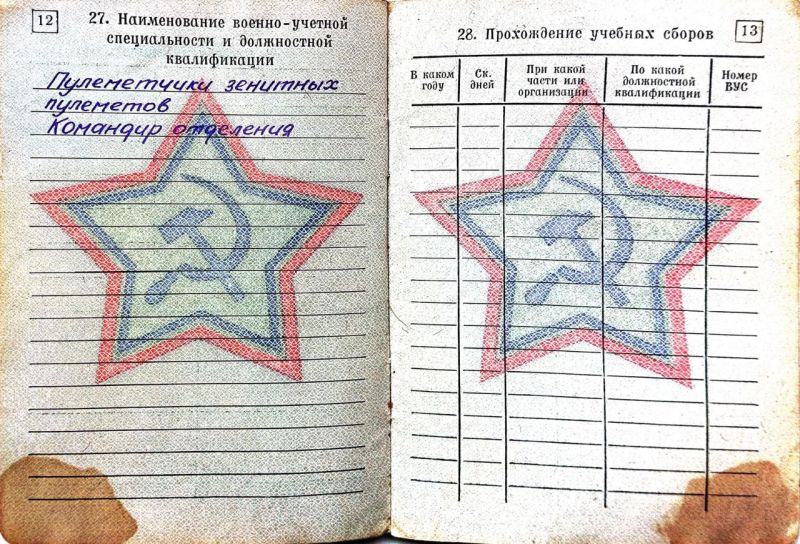 12
27. Наименование военно-учетной
специальности и должностной
квалификации
Пулеметчики зенитных
пулеметов
Командир отделения
28. Прохождение учебных сборов
13
В каком
году
Ск.
дней
При какой
части или
организации
По какой
должностной
квалификации
Номер
ВУС